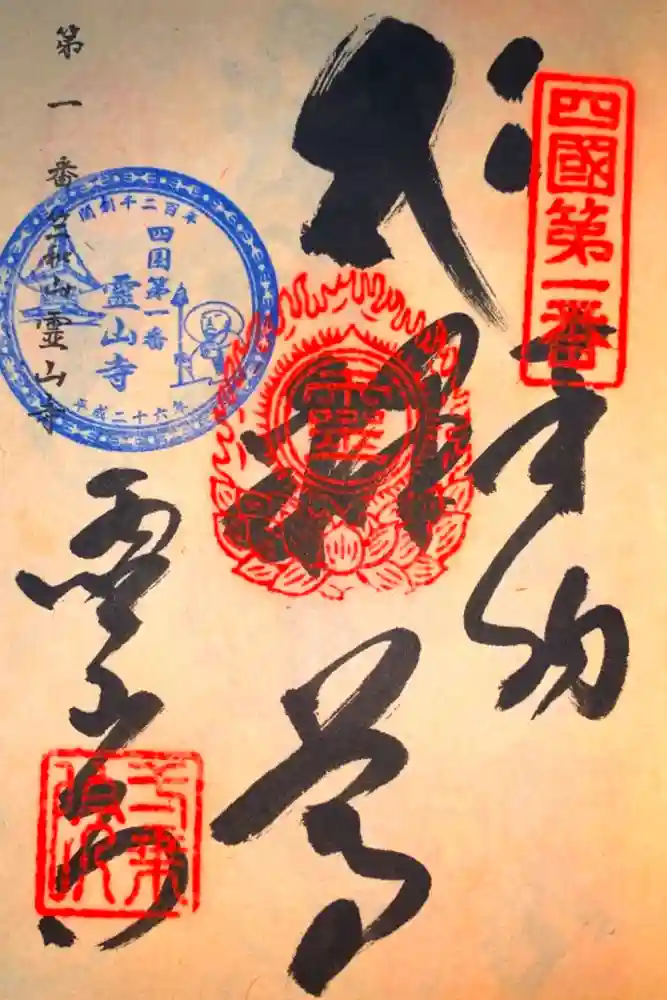 四國第一番
奉納
靈
開創千二百年
四国第一番
霊山寺
平成二十六年
第一番竺和山霊山寺
霊山寺